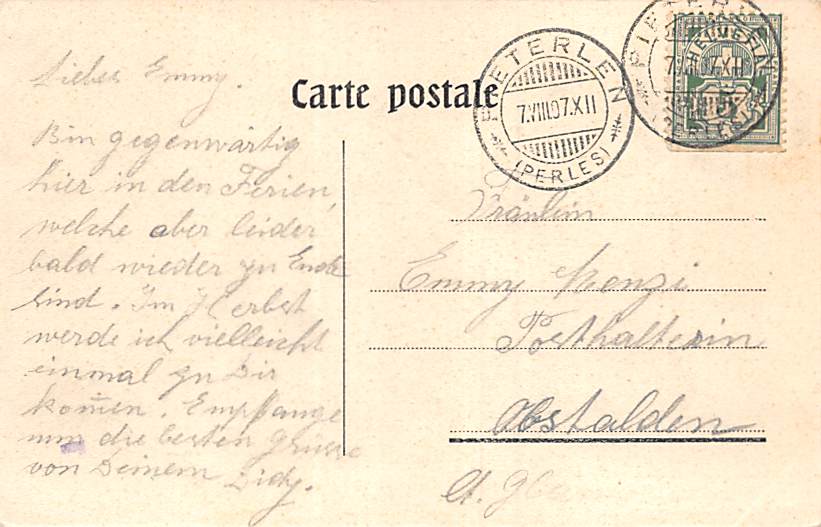 Carte postale
PIETERLEN
7.VIII.07.XII
(PERLES)
HELVETIA
5
Liebes Emmy.
Bin gegenwärtig
hier in den Ferien,
welche aber leider
bald wieder zu Ende
sind. Im Herbst
werde ich vielleicht
einmal zu Dir
kom̄en. Empfange
nun die besten Grüsse
von Deinem
Fräulein
Emmy Menzi
Posthalterin
Obstalden
Ct. Glarus